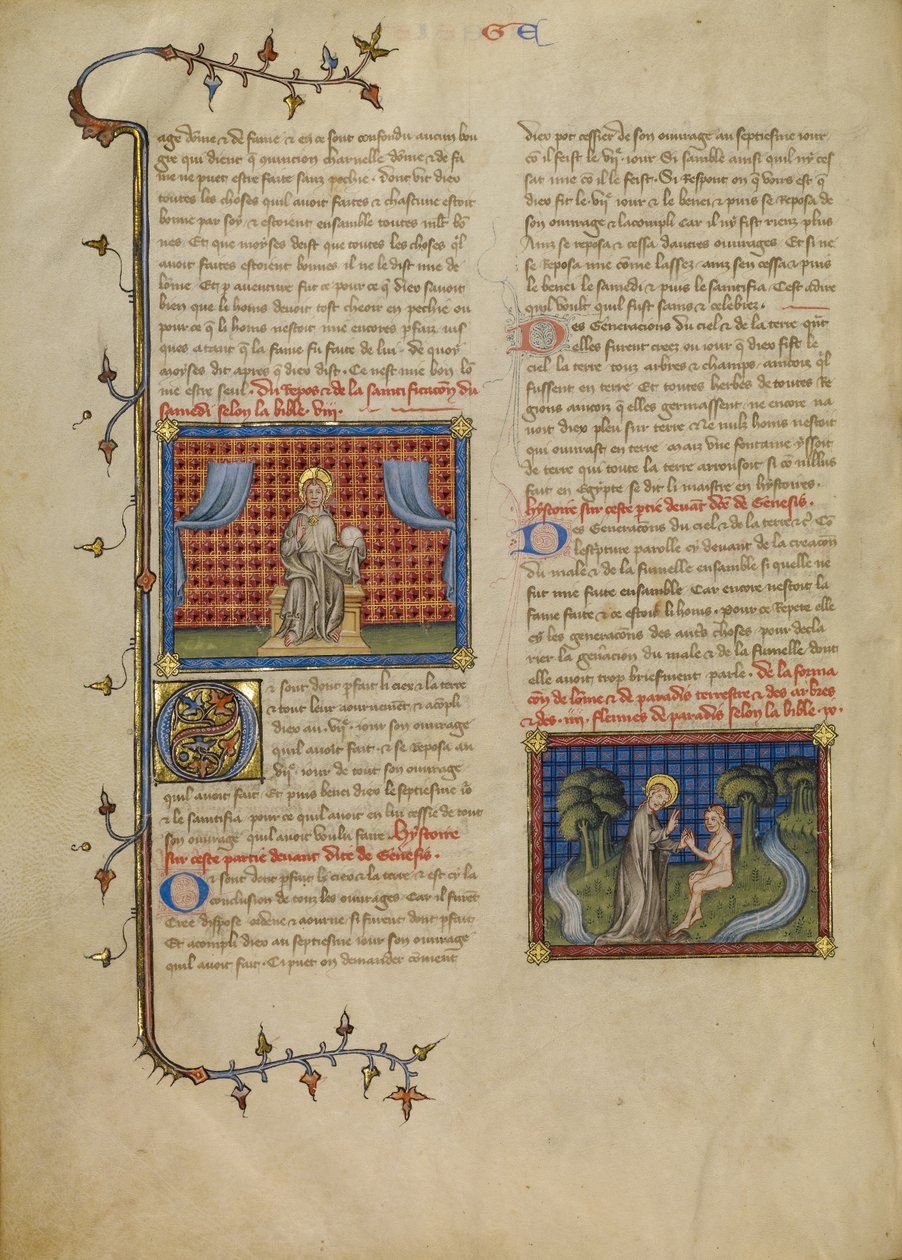 GE
age dome & de fame & en ce sont confondu aucun bou
gre qui dient q̄ qumcion charnelle dome & de fa
me ne puet estre faite sanz pechie . dont vit dieu
toutes les choses quil auoit faites & chascune estoit
bonne par soy . & estoient ensamble toutes mlt̄ bō
nes . Et que moyses deist que toutes les choses q̄l
auoit faites estoient bonnes il ne le dist mie de
lome . Et p auenture fut ce pour ce q̄ dieu sauoit
bien que li homs deuoit tost cheoir en pechie ou
pour ce q̄ li homs nestoit mie encores pfair ius
ques atant q̄ la fame fu faite de lui . de quoy
moyses dit apres q̄ dieu dist . Ce nest mie bon lo
me estre seul . du Repos & de la saintificacōn du
samedi selon la bible . viij .
Et sont dont pfait li ciex & la terre
& tout leur aournement & acōpli
dieu au . vije . iour son ouurage
quil auoit fait . & se reposa au
vije . iour de tout son ouurage
quil auoit fait . Et puis benei dieu le septiesme io
& le saintifia . pour ce quil auoit en lui cessie de tout
son ouurage quil auoit voulu faire . hystoire
sur ceste partie deuant dite de Genesis .
Or sont dont pfait le ciex & la terre . & est cy la
conclusion de touz les ouurages . Car il furent
Cree dispose ordene & aourne . si furent dont pfait
Et acompli dieu au septiesme iour son ouurage
quil auoit fait . Ci puet on demander cōment
dieu pot cessier de son ouurage au septiesme iour
cō il feist le vije . iour Si samble ainsi quil ny ces
sat mie cō il le feist . Si Respont on q̄ voirs est q̄
dieu fit le . vije iour & le benei & puis se Reposa de
son ouurage & lacompli car il ny fist rienz plus
Ainz se reposa & cessa dautres ouurages . Et si ne
se Reposa mie cōme lassez . ainz sen cessa & puis
le benei le samedi & puis le saintifia . Cest adire
quil voult quil fust sains & celebrez .
Des Generacions du ciel & de la terre qn̄t
elles furent creez ou iour q̄ dieu fist le
ciel la terre touz arbres & champs . aincois q̄l
fussent en terre Et toutes herbes de toutes Re
gions aincois q̄ elles germassent . ne encore na
uoit diex pleu sur terre & ne nulz homs nestoit
qui ouurast en terre . maiz vne fontaine yssoit
de terre qui toute la terre arrousoit si cō nillus
fait en Egypte se dit li maistre en hystoires .
hystoire sur ceste ptie deuant dcē de Genesis .
Des Generacōns du ciel & de la terre &c̄ Cō
lescpture parolle cy deuant de la creacōn
du male & de la fumelle ensamble si quelle ne
fut mie faite ensamble . Car encore nestoit la
fame faite & ce estoit li homs . Pour ce Repete elle
cy les generacōns des autēs choses . pour decla
rier la gn̄eracion du male & de la fumelle dont
elle auoit trop briefment parle . De la forma
cōn de lōme & de paradis terrestre & des arbres
& des . iiij . fleuues de paradis selon la bible . po .